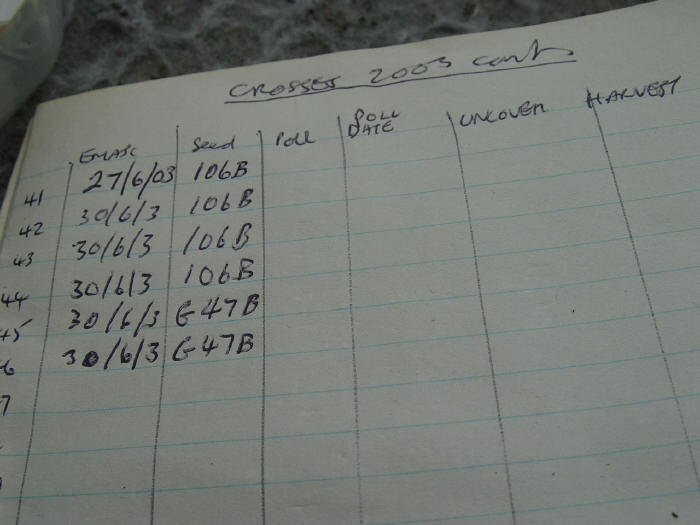 CROSSES 2003 cont
EMASC Seed Poll POLL DATE UNCOVER HARVEST
41 27/6/03 106B
42 30/6/3 106B
43 30/6/3 106B
44 30/6/3 106B
45 30/6/3 G47B
6 30/6/3 G47B
7